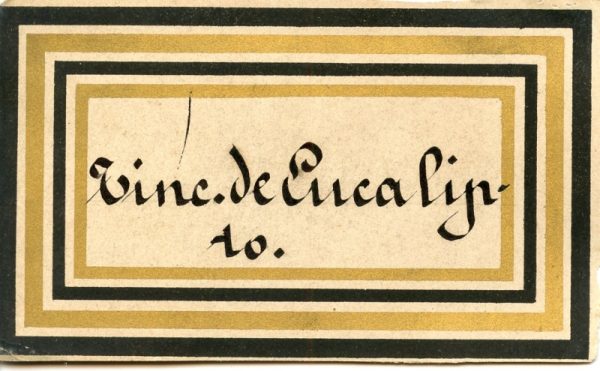 Tinc. de Eucalip-
to.